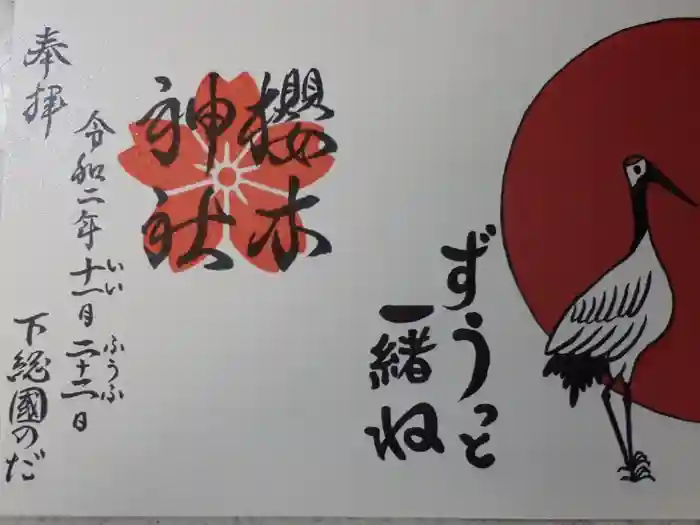 ずうっと
一緒ね
櫻木
神社
奉拝
令和二年十一月二十二日
いい ふうふ
下総國のだ